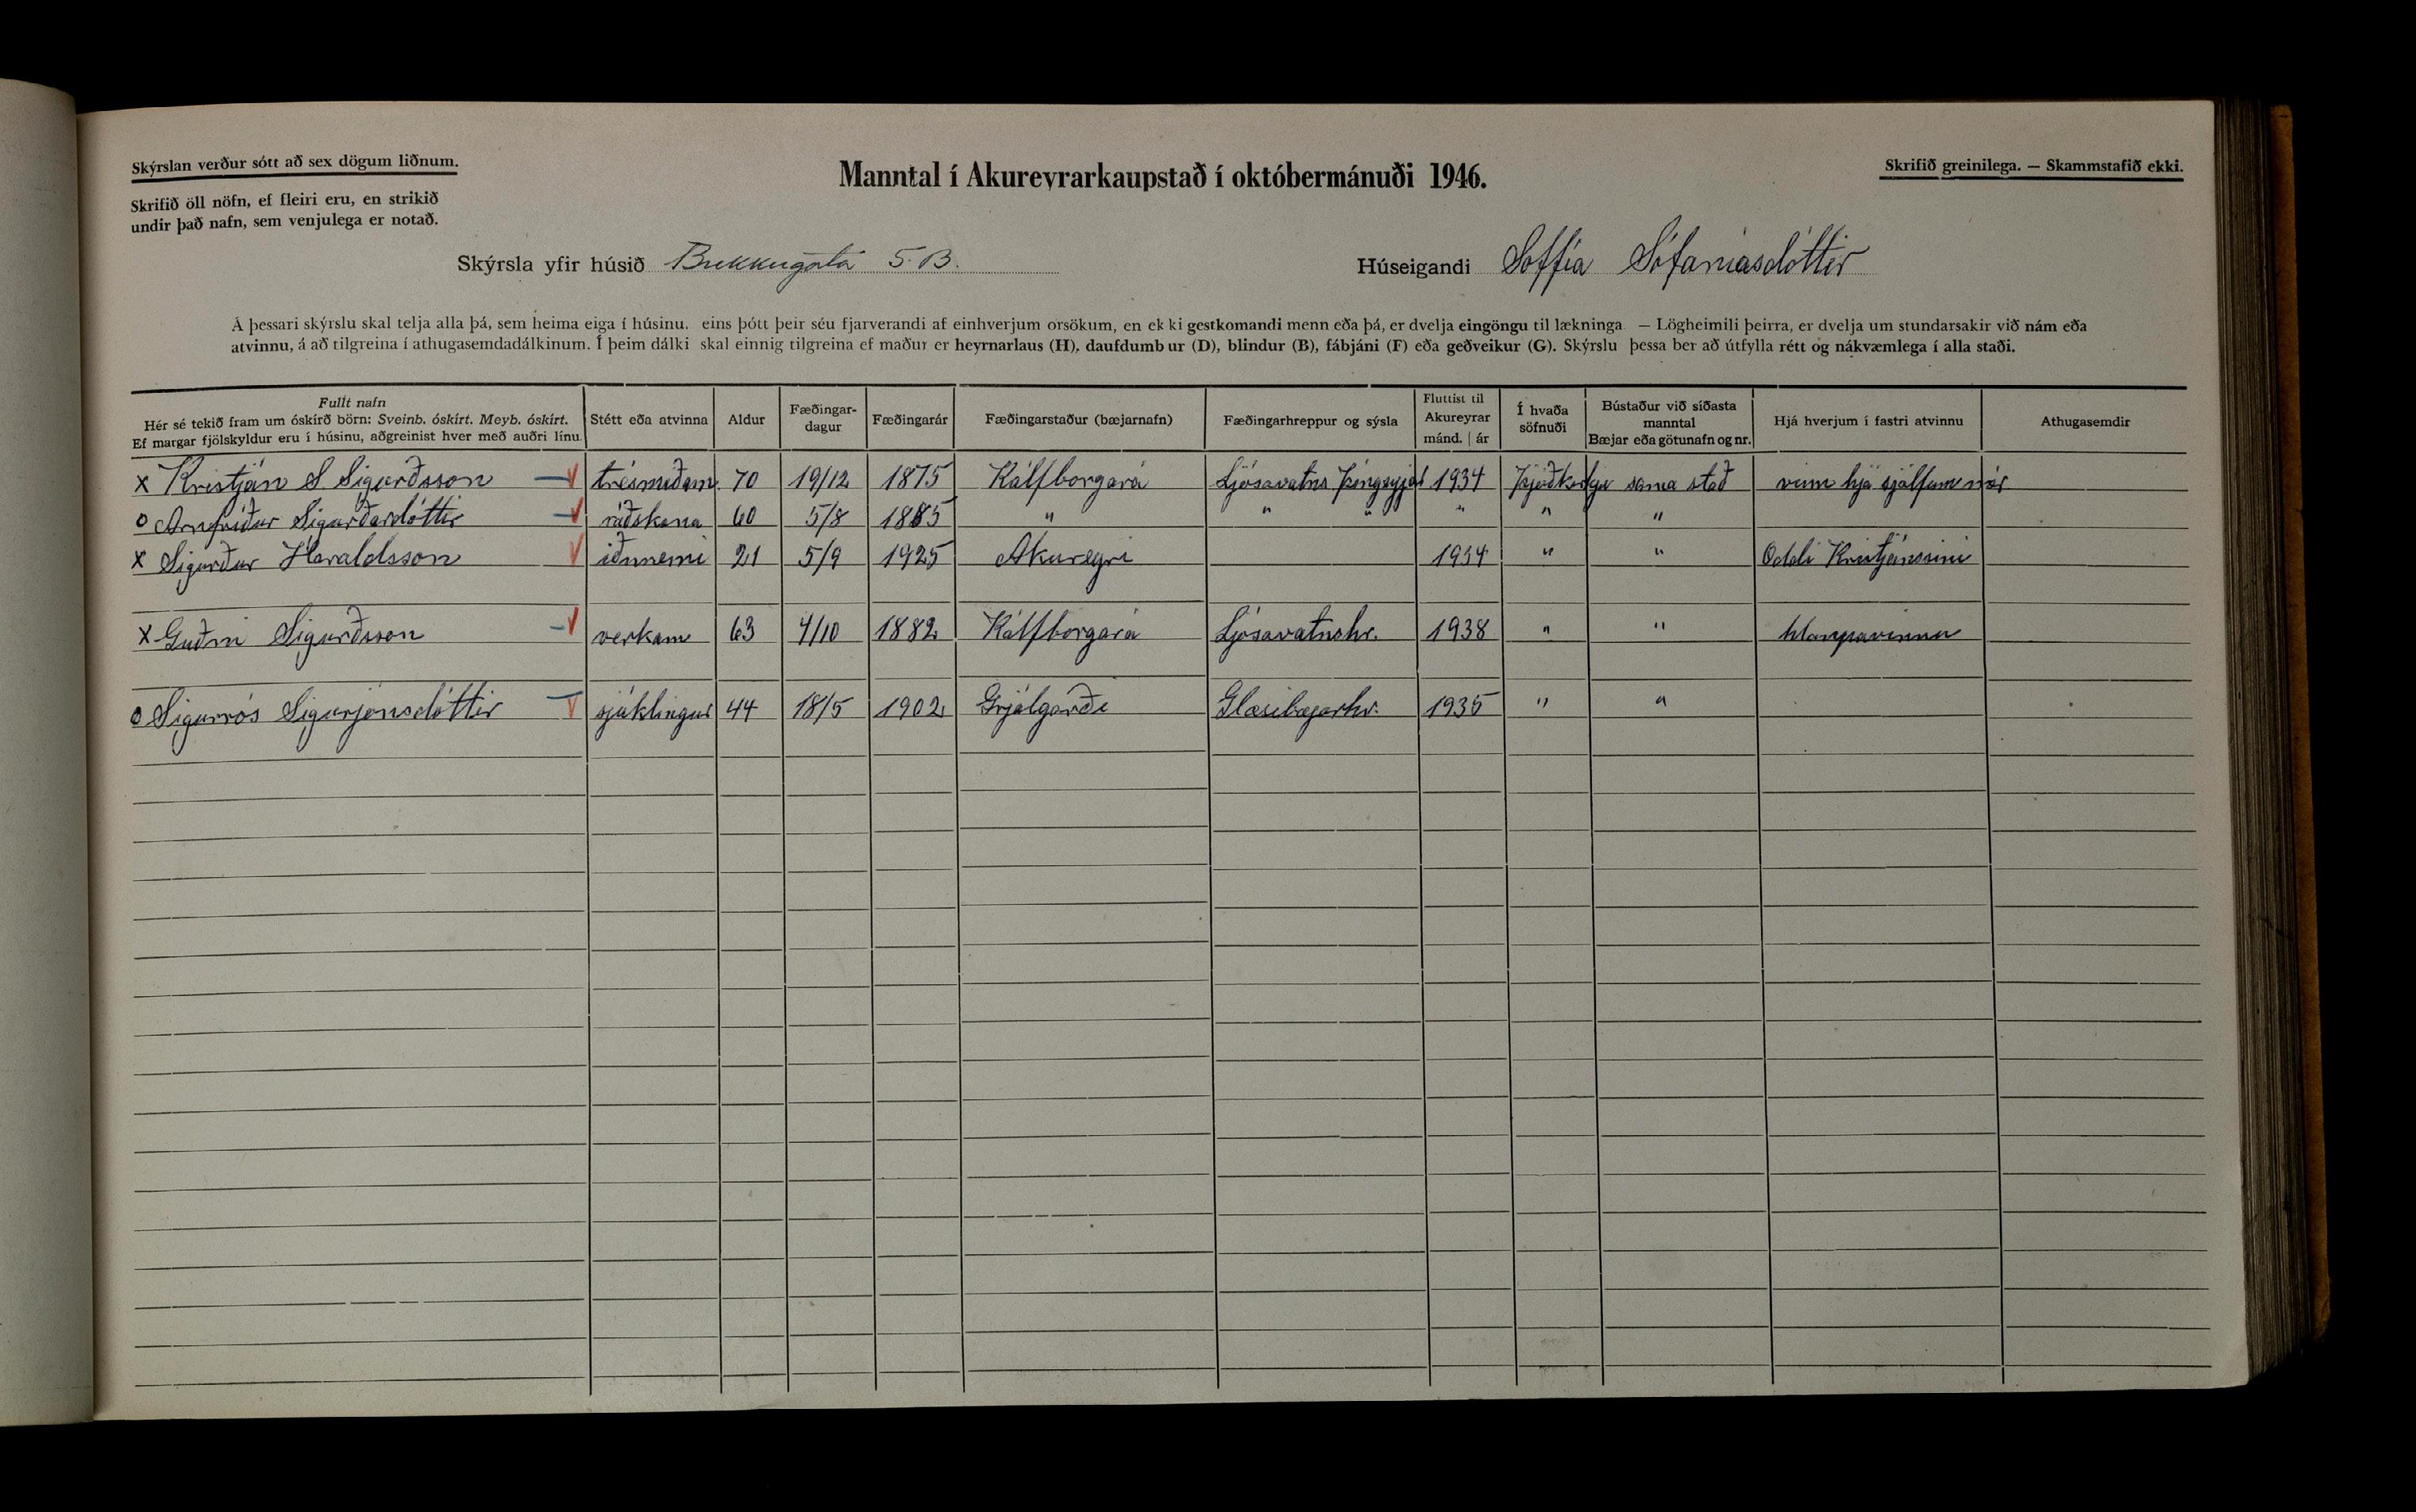 Skýrslan verður sótt að sex dögum liðnum.
Manntal í Akureyrarkaupstað í októbermánuði 1946.
Skrifið greinilega. — Skammstafið ekki.
Skrifið öll nöfn, ef fleiri eru, en strikið
undir það nafn, sem venjulega er notað.
Skýrsla yfir húsið Brekkugata 5.B. Húseigandi Soffía Sófaníasdóttir
Á þessari skýrslu skal telja alla þá, sem heima eiga í húsinu. eins þótt þeir séu fjarverandi af einhverjum orsökum, en ekki gestkomandi menn eða þá, er dvelja eingöngu til lækninga — Lögheimili þeirra, er dvelja um stundarsakir við nám eða
atvinnu, á að tilgreina í athugasemdadálkinum. Í þeim dálki skal einnig tilgreina ef maður er heyrnarlaus (H), daufdumbur (D), blindur (B), fábjáni (F) eða geðveikur (G). Skýrslu þessa ber að útfylla rétt og nákvæmlega í alla staði.
Fullt nafn
Hér sé tekið fram um óskírð börn: Sveinb. óskírt. Meyb. óskírt.
Ef margar fjölskyldur eru í húsinu, aðgreinist hver með auðri línu.
Stétt eða atvinna
Aldur
Fæðingar-
dagur
Fæðingarár
Fæðingarstaður (bæjarnafn)
Fæðingarhreppur og sýsla
Fluttist til
Akureyrar
mánd. | ár
Í hvaða
söfnuði
Bústaður við síðasta
manntal
Bæjar eða götunafn og nr.
Hjá hverjum í fastri atvinnu
Athugasemdir
x Kristján S Sigurðsson trésmiðam. 70 19/12 1875 Kálfborgará Ljósavatns Þingeyjar 1934 Þjóðkirkju sama stað vinn hjá sjálfum mér
o Arnfríður Sigurðardóttir ráðskona 60 5/8 1885 " " " " " "
x Sigurður Haraldsson iðnnemi 21 5/9 1925 Akureyri 1934 " " Oddi Kristjánssini
x Guðni Sigurðsson verkam 63 4/10 1882 Kálfborgará Ljósavatnshr. 1938 " " hlaupavinna
o Sigurrós Sigurjónsdóttir sjúklingur 44 18/5 1902 Grjótgarði Glæsibæjarhr. 1935 " "